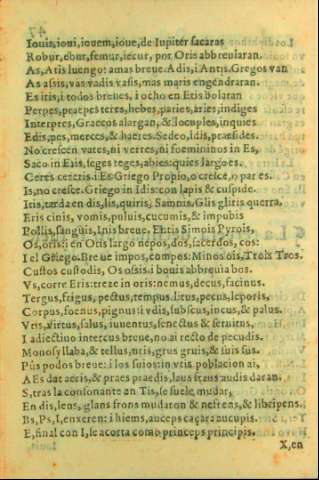 47
Iouis, ioui, iouem, ioue, de Iupiter sacaras
Robur, ebur, femur, iecur, por Oris abbreuiaran.
As, Atis luengo: amas breue. Adis, i Antis. Gregos van
As assis, vas vadis vasis, mas maris engendraran.
Es itis, i todos breues, i ocho en Etis bolaran
Perpes, praepes teres, hebes, paries, aries, indiges
Interpres, Graecos alargan, & locuples, inquies
Edis, pes, merces, & haeres. Sedeo, Idis, praesides.
No crescen vates, ni verres, ni foemininos en Es,
Saco in Etis, seges teges, abies: quies largo es.
Ceres ceteris. i Es Griego Propio, o cresce, o par es.
Is, no cresce. Griego in Idis: con lapis & cuspide.
Itis, tarda en dis, lis, quiris, Samnis. Glis gliris querra.
Eris cinis, vomis, puluis, cucumis, & impubis
Pollis, sanguis, Inis breue. Entis Simois Pyrois,
Os, ossis: i en Otis largo nepos, dos, sacerdos, cos:
I el Griego. Breue impos, compos: Minos ois, Tros Tros.
Custos custodis, Os ossis. i bouis abbreuia bos.
Vs, corre Eris: treze in oris: nemus, decus, facinus.
Tergus, frigus, pectus, tempus. litus, pecus, leporis,
Corpus, foenus, pignus: i vdis, subscus, incus, & palus.
Vtis, virtus, salus, iuuentus, senectus & seruitus,
I adiectiuo intercus breue, no ai recto de pecudis.
Monosyllaba, & tellus, vris, grus gruis, & suis sus.
Pus podos breue: i los suios: in vntis poblacion ai,
AEs dat aeris, & praes praedis, laus fraus audis daran.
S, tras la consonante en Tis, se suele mudar,
En dis, lens, glans frons mudaron & nefrens, & libripens.
Bs, Ps, I, enxeren: i hiems, auceps caçar aucupis.
E, final con I, se acorta como princeps principis.
X, en